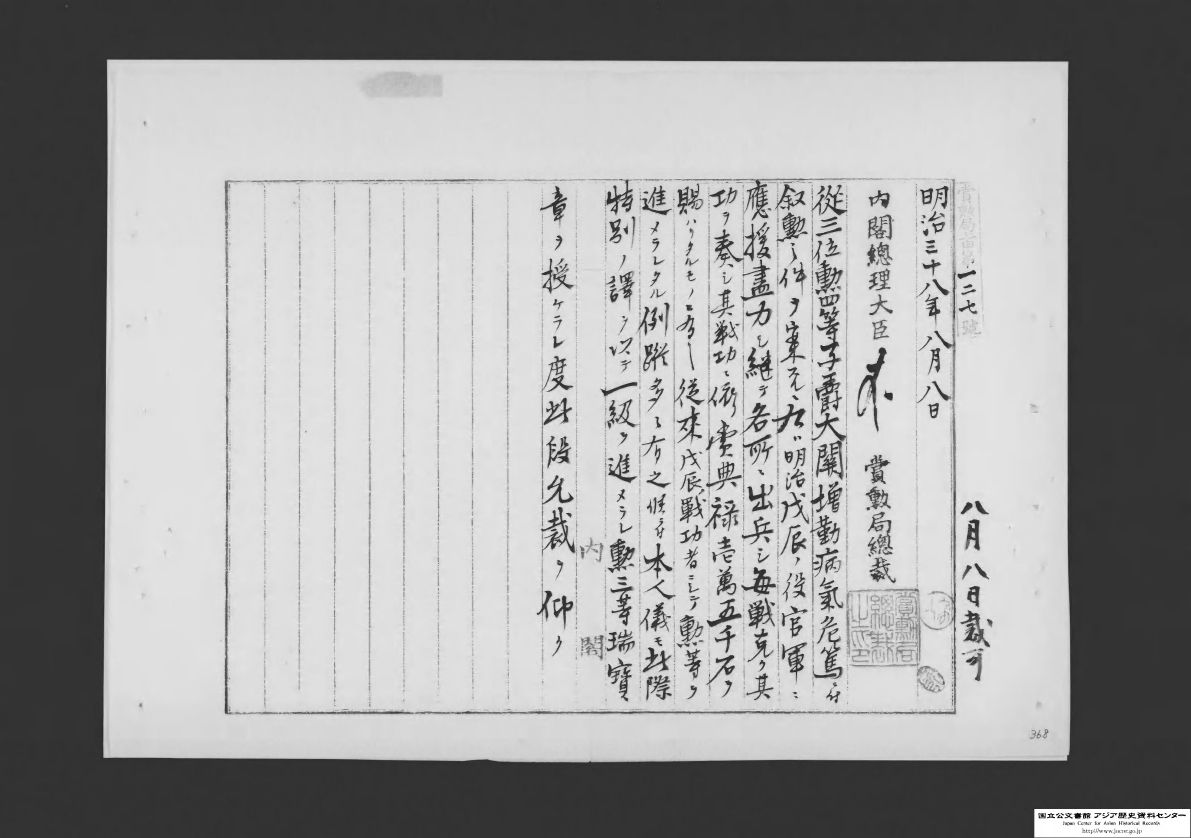 一二七號
明治三十八年八月八日
八月八日裁可
内閣總理大臣
賞勲局總裁
從三位勲四等子爵大關增勤病氣危篤ニ付
叙勲ノ件ヲ案スルニ右ハ明治戊辰ノ役官軍ニ
應援盡力シ継テ各所ニ出兵シ毎戰克ク其
功ヲ奏シ其戰功ニ依リ賞典禄壱萬五千石ヲ
賜ハリタルモノニ有之從來戊辰戰功者ニシテ勲等ヲ
進メラレタル例蹤多々有之候ニ付本人儀モ此際
特別ノ譯ヲ以テ一級ヲ進メラレ勲三等瑞寶
章ヲ授ケラレ度此段允裁ヲ仰ク
内閣
賞勲局總裁之印
368
国立公文書館 アジア歴史資料センター
Japan Center for Asian Historical Records
http://www.jacar.go.jp